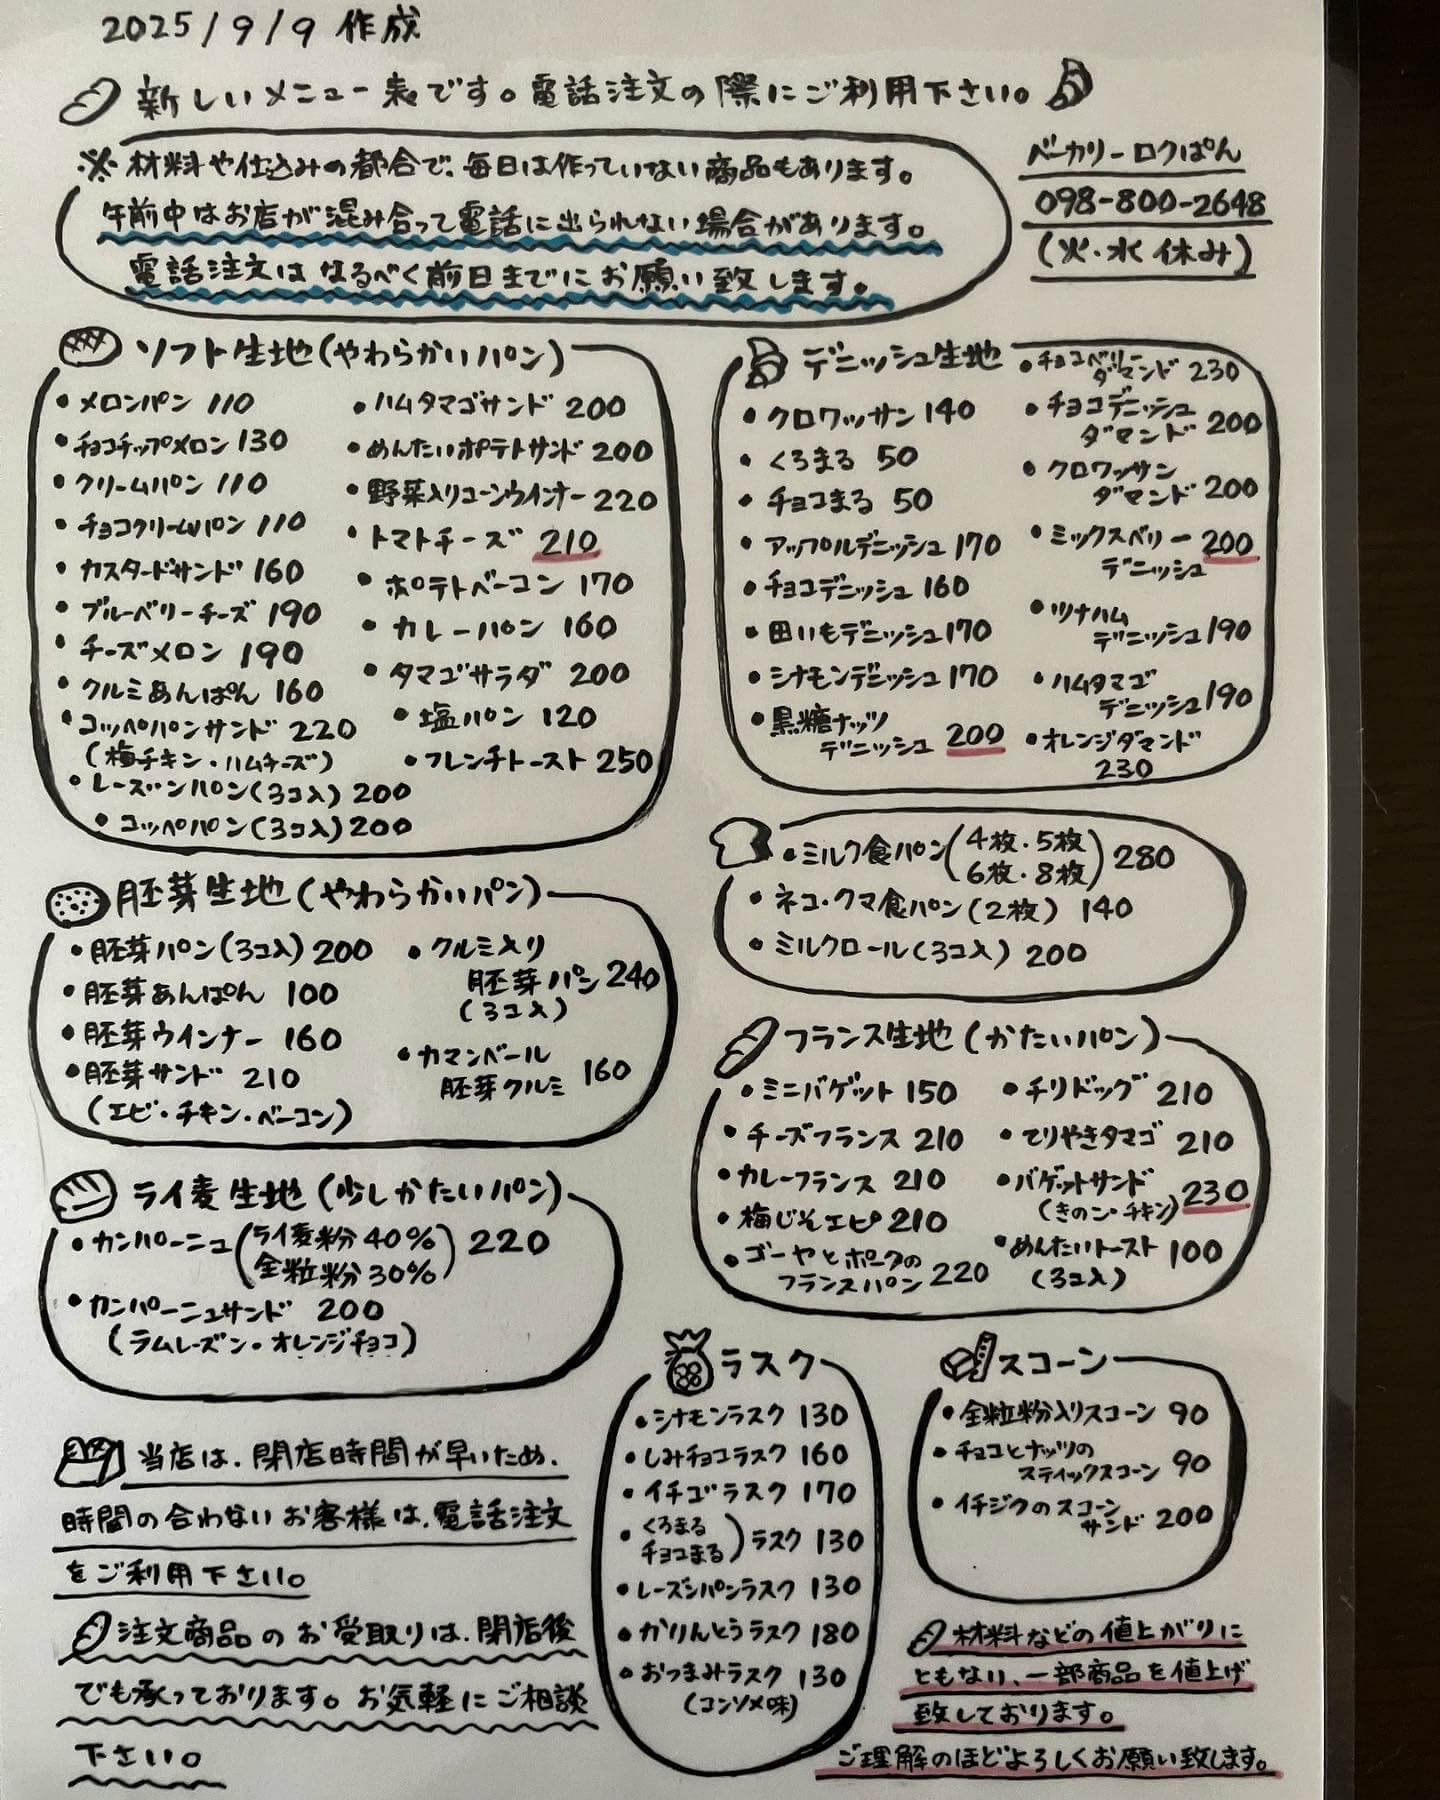 2025/9/9 作成
新しいメニュー表です。電話注文の際にご利用下さい。
※材料や仕込みの都合で、毎日は作っていない商品もあります。
午前中はお店が混み合って電話に出られない場合があります。
電話注文は なるべく前日までにお願い致します。
ベーカリーロクぱん
098-800-2648
(火・水 休み)
ソフト生地(やわらかいパン)
・メロンパン 110
・チョコチップメロン 130
・クリームパン 110
・チョコクリームパン 110
・カスタードサンド 160
・ブルーベリーチーズ 190
・チーズメロン 190
・クルミあんぱん 160
・コッペパンサンド 220
(梅チキン・ハムチーズ)
・レーズンパン(3コ入) 200
・コッペパン(3コ入) 200
・ハムタマゴサンド 200
・めんたいポテトサンド 200
・野菜入りコーンウインナー 220
・トマトチーズ 210
・ポテトベーコン 170
・カレーパン 160
・タマゴサラダ 200
・塩パン 120
・フレンチトースト 250
デニッシュ生地
・クロワッサン 140
・くろまる 50
・チョコまる 50
・アップルデニッシュ 170
・チョコデニッシュ 160
・田いもデニッシュ 170
・シナモンデニッシュ 170
・黒糖ナッツ
デニッシュ 200
・チョコベリー
ダマンド 230
・チョコデニッシュ
ダマンド 200
・クロワッサン
ダマンド 200
・ミックスベリー 200
デニッシュ
・ツナハム
デニッシュ 190
・ハムタマゴ
デニッシュ 190
・オレンジダマンド
230
・ミルク食パン(4枚・5枚
6枚・8枚) 280
・ネコ・クマ食パン(2枚) 140
・ミルクロール(3コ入) 200
胚芽生地(やわらかいパン)
・胚芽パン(3コ入) 200
・胚芽あんぱん 100
・胚芽ウインナー 160
・胚芽サンド 210
(エビ・チキン・ベーコン)
・クルミ入り
胚芽パン 240
(3コ入)
・カマンベール
胚芽クルミ 160
フランス生地(かたいパン)
・ミニバゲット 150
・チーズフランス 210
・カレーフランス 210
・梅じそエピ 210
・ゴーヤとポークの
フランスパン 220
・チリドッグ 210
・てりやきタマゴ 210
・バゲットサンド
(きのこ・チキン) 230
・めんたいトースト 100
(3コ入)
ライ麦生地(少しかたいパン)
・カンパーニュ(ライ麦粉40%
全粒粉30%) 220
・カンパーニュサンド 200
(ラムレーズン・オレンジチョコ)
ラスク
・シナモンラスク 130
・しみチョコラスク 160
・イチゴラスク 170
・くろまる
チョコまる)ラスク 130
・レーズンパンラスク 130
・かりんとうラスク 180
・おつまみラスク 130
(コンソメ味)
スコーン
・全粒粉入りスコーン 90
・チョコとナッツの
スティックスコーン 90
・イチジクのスコーン
サンド 200
当店は、閉店時間が早いため、
時間の合わないお客様は、電話注文
をご利用下さい。
注文商品のお受取りは、閉店後
でも承っております。お気軽にご相談
下さい。
材料などの値上がりに
ともない、一部商品を値上げ
致しております。
ご理解のほどよろしくお願い致します。